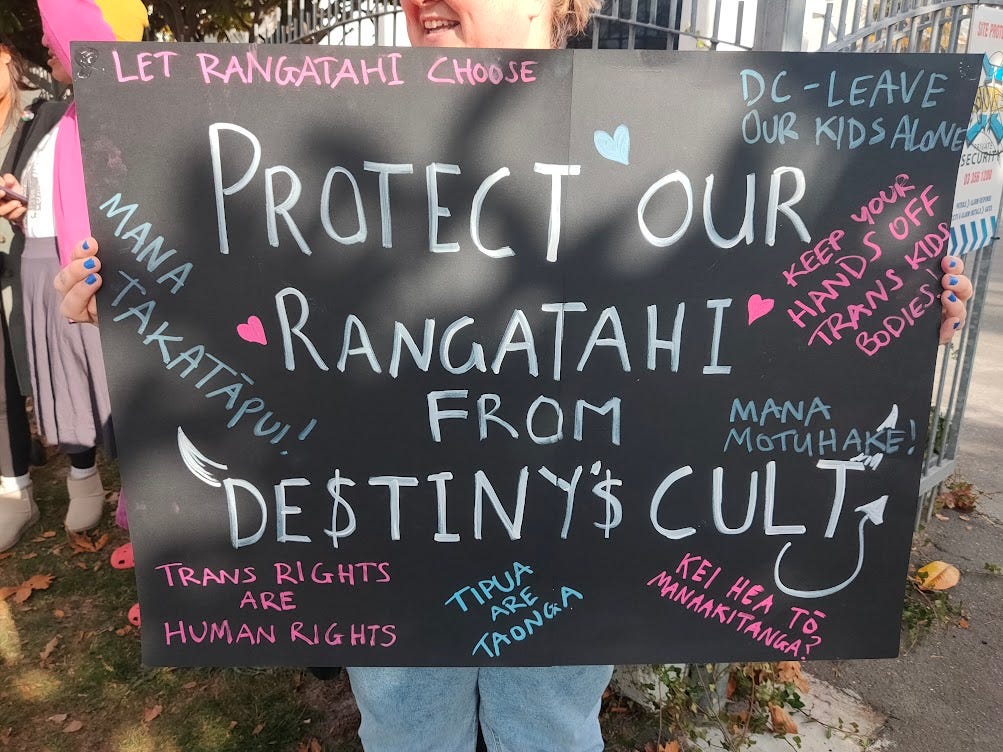 LET RANGATAHI CHOOSE
DC - LEAVE
OUR KIDS ALONE
PROTECT OUR
RANGATAHI
FROM
DE$TINY'$ CULT
MANA
TAKATĀPUI!
KEEP YOUR
HANDS OFF
TRANS KIDS
BODIES!
MANA
MOTUHAKE!
TRANS RIGHTS
ARE
HUMAN RIGHTS
TIPUA
ARE
TAONGA
KEI HEA TŌ
MANAAKITANGA?
SECURITY